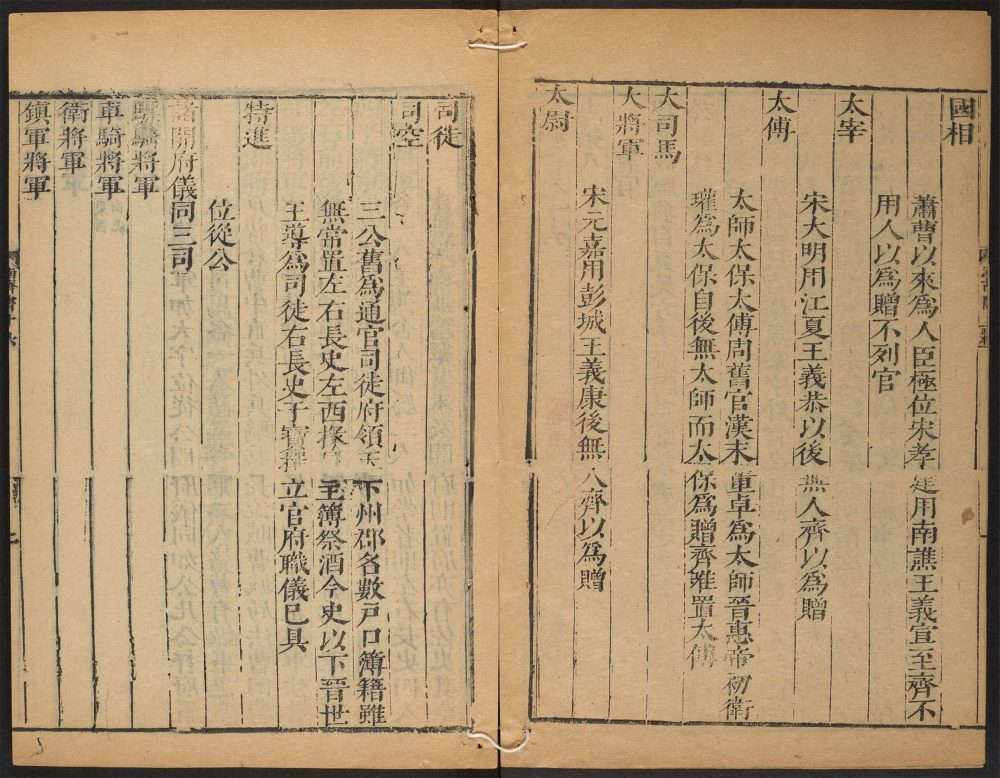 國相
蕭曹以來爲人臣極位宋孝建用南譙王義宣至齊不
用人以爲贈不列官
太宰
宋大明用江夏王義恭以後無人齊以爲贈
太傅
太師太保太傅周舊官漢末董卓爲太師晉惠帝初衞
瓘爲太保自後無太師而太保爲贈齊唯置太傅
大司馬
大將軍
宋元嘉用彭城王義康後無人齊以爲贈
太尉
司徒
司空
三公舊爲通官司徒府領天下州郡名數戸口簿籍雖
無常置左右長史左西掾屬主簿祭酒令史以下晉世
王導爲司徒右長史干寶撰立官府職儀已具
特進
位從公
諸開府儀同三司
驃騎將軍
車騎將軍
衞將軍
鎮軍將軍